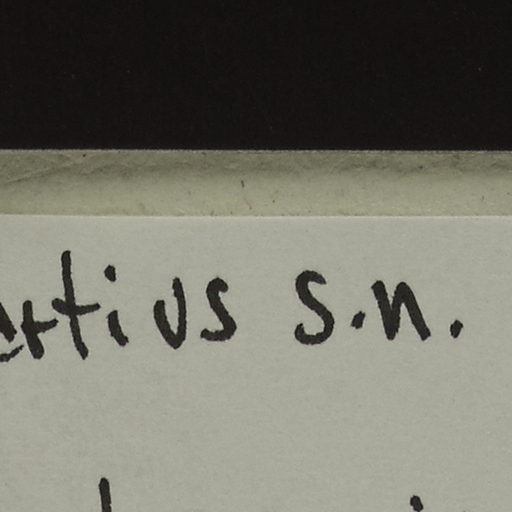 ertius s.n.